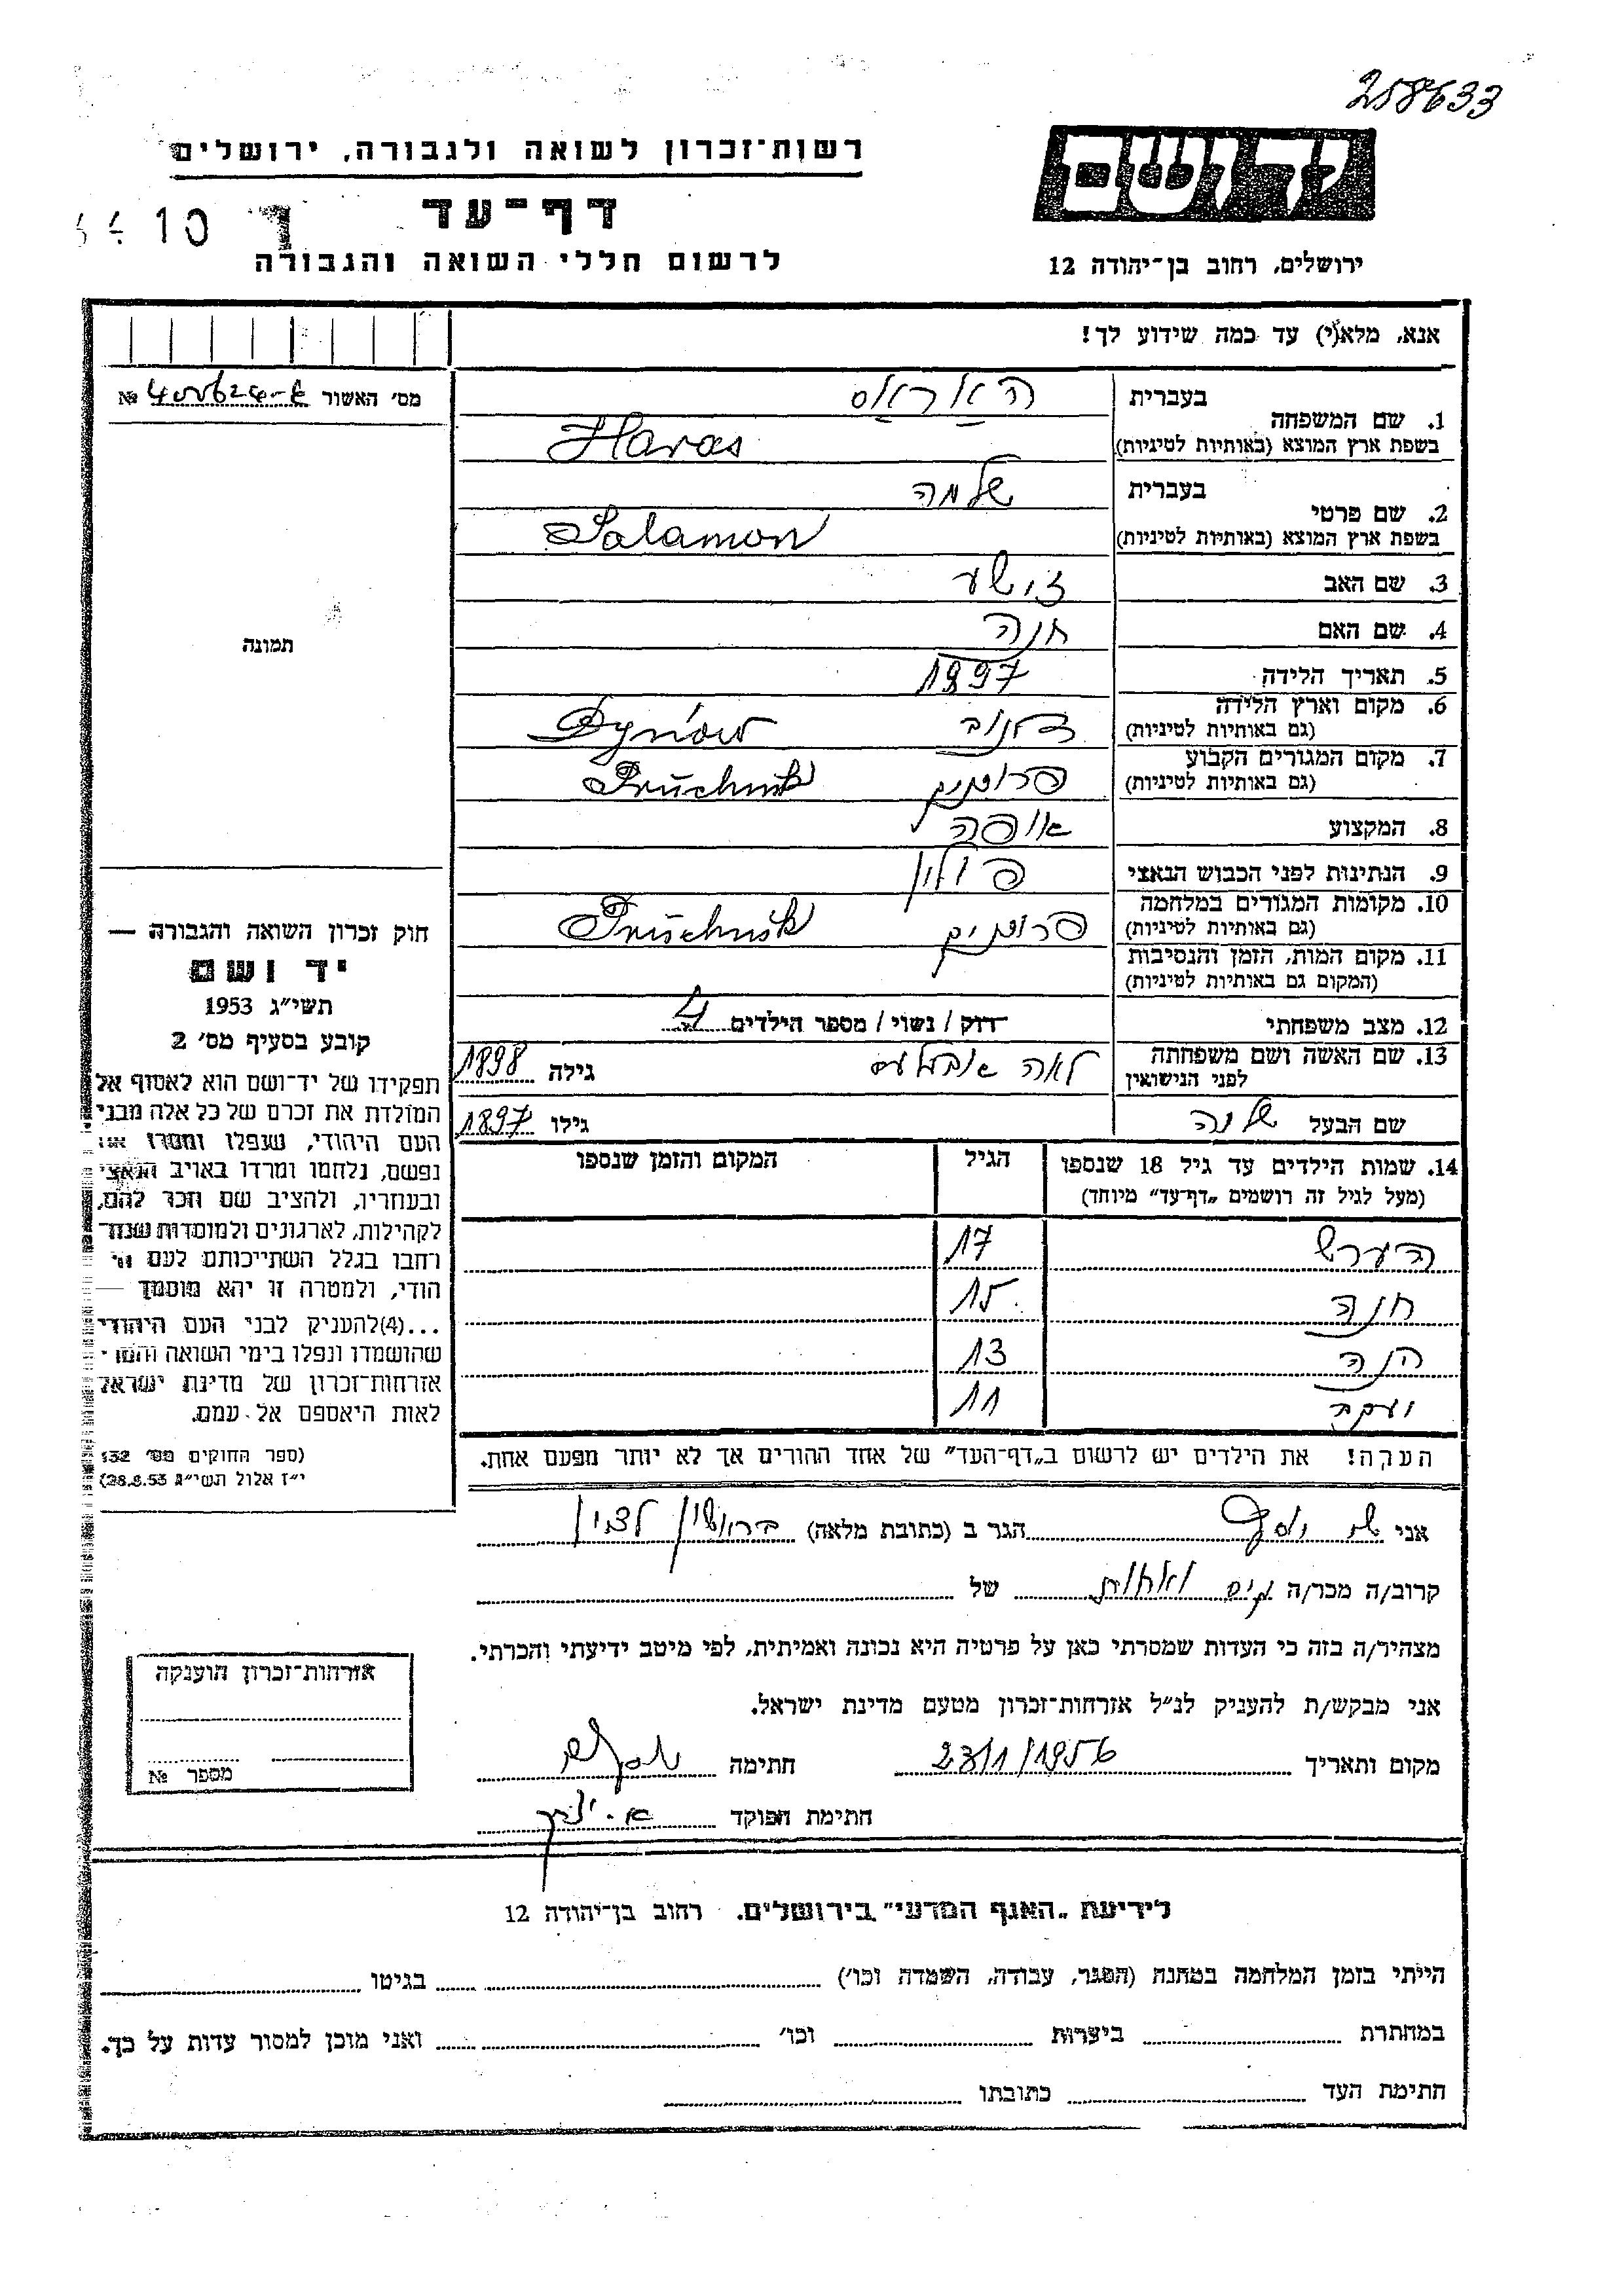 258633
יד ושם
רשות־זכרון לשואה ולגבורה, ירושלים
דף־עד
10 ד
לרשום חללי השואה והגבורה
ירושלים, רחוב בן־יהודה 12
אנא, מלא(י) עד כמה שידוע לך!
מס׳ האשור №
1. שם המשפחה
בעברית האראס
בשפת ארץ המוצא (באותיות לטיניות) Haras
2. שם פרטי
בעברית שלמה
בשפת ארץ המוצא (באותיות לטיניות) Salamon
3. שם האב
4. שם האם חנה
5. תאריך הלידה 1897
6. מקום וארץ הלידה
(גם באותיות לטיניות) דינוב Dynów
7. מקום המגורים הקבוע
(גם באותיות לטיניות) פרוכניק Pruchnik
8. המקצוע אופה
9. הנתינות לפני הכבוש הנאצי פולין
10. מקומות המגורים במלחמה
(גם באותיות לטיניות) פרוכניק Pruchnik
11. מקום המות, הזמן והנסיבות
(המקום גם באותיות לטיניות)
12. מצב משפחתי רווק / נשוי / מספר הילדים 4
13. שם האשה ושם משפחתה
לפני הנישואין לאה גילה 1898
שם הבעל שלמה גילו 1897
14. שמות הילדים עד גיל 18 שנספו הגיל המקום והזמן שנספו
(מעל לגיל זה רושמים „דף־עד״ מיוחד)
הערש 17
חנה 15
הנה 13
יעקב 11
הערה! את הילדים יש לרשום ב„דף־העד״ של אחד ההורים אך לא יותר מפעם אחת.
תמונה
חוק זכרון השואה והגבורה —
יד ושם
תשי״ג 1953
קובע בסעיף מס׳ 2
תפקידו של יד־ושם הוא לאסוף אל
המולדת את זכרם של כל אלה מבני
העם היהודי, שנפלו ומסרו את
נפשם, נלחמו ומרדו באויב הנאצי
ובעוזריו, ולהציב שם וזכר להם,
לקהילות, לארגונים ולמוסדות שנח־
רבו בגלל השתייכותם לעם הי־
הודי, ולמטרה זו יהא מוסמך —
...(4) להעניק לבני העם היהודי
שהושמדו ונפלו בימי השואה והמרי
אזרחות־זכרון של מדינת ישראל
לאות היאספם אל עמם.
(ספר החוקים מס׳ 132
י״ז אלול תשי״ג 28.8.53)
אני יוסף הגר ב (כתובת מלאה) בראשון לציון
קרוב/ה מכר/ה גיס ואחות של
מצהיר/ה בזה כי העדות שמסרתי כאן על פרטיה היא נכונה ואמיתית, לפי מיטב ידיעתי והכרתי.
אני מבקש/ת להעניק לנ״ל אזרחות־זכרון מטעם מדינת ישראל.
מקום ותאריך 23/1/1956 חתימה
חתימת הפוקד
אזרחות־זכרון הוענקה
מספר №
לידיעת „האגף המדעי״ בירושלים. רחוב בן־יהודה 12
הייתי בזמן המלחמה במחנה (הסגר, עבודה, השמדה וכו׳) בגיטו
במחתרת ביערות וכו׳ ואני מוכן למסור עדות על כך.
חתימת העד כתובתו